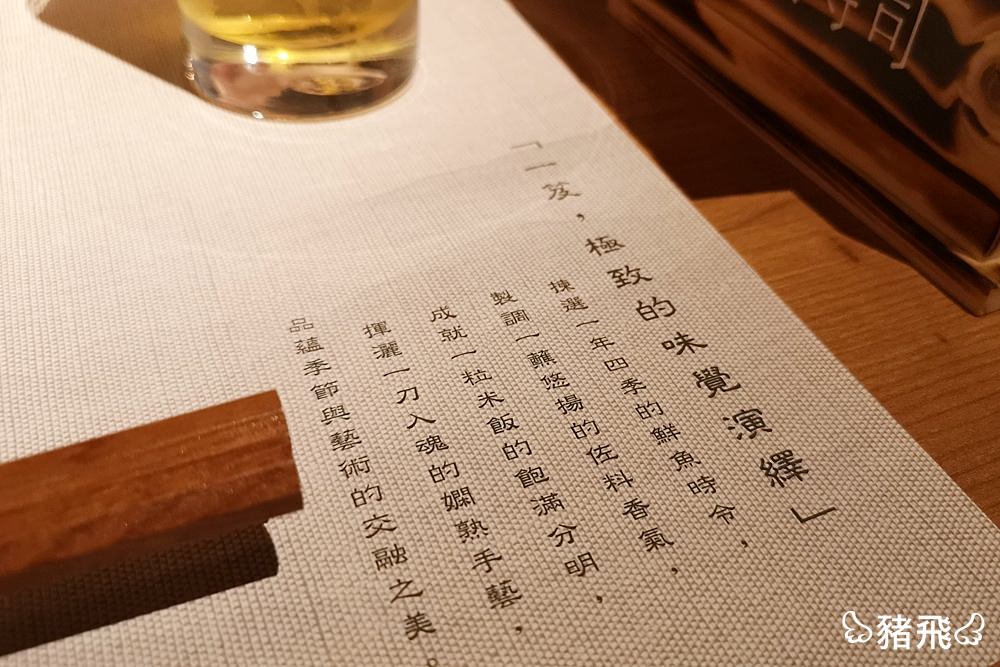 司
「一笈，極致的味覺演繹」
揀選一年四季的鮮魚時令，
製調一蘸悠揚的佐料香氣，
成就一粒米飯的飽滿分明，
揮灑一刀入魂的嫻熟手藝，
品蘊季節與藝術的交融之美。
豬飛